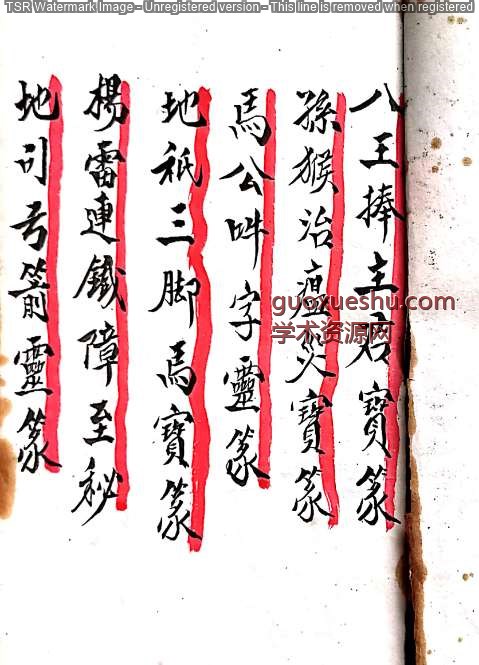 TSR Watermark Image - Unregistered version - This line is removed when registered
八王捧主君寳篆
孫猴治瘟災寳篆
馬公吽字靈篆
地祇三脚馬寳篆
楊雷連鐵障至秘
地司号箭靈篆
guoxueshu.com
学术资源网